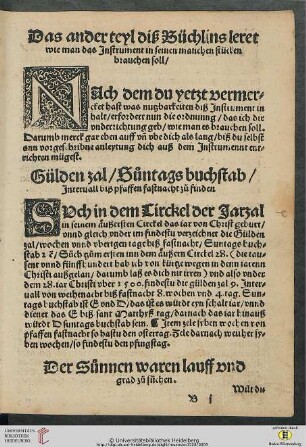 Das ander teyl diß Büchlins leret
wie man das Instrument in seinen manchen stücken
brauchen soll/
NAch dem du yetzt vermer-
cket hast was nutzbarkeiten diß Instrument in
halt/ erfordert nun die ordnung/ das ich dir
vnderrichtung geb/ wie man es brauchen soll.
Darumb merck gar eben auff vñ vbe dich als lang/ biß du selbst
on vorgeschribne anleytung dich auß dem Instrument
richten mügest.
Gülden zal/ Suntags buchstab/
Interuall biß pfaffen fastnacht zu finden
SUch in dem Circkel der Jarzal
in seinem äussersten Circkel das jar von Christ geburt/
vnnd gleich vnder im findestu verzeichnet die Gülden
zal/ wochen vnnd vbertzen tage biß fastnacht/ Suntags buch-
stab ꝛc/ Such zum ersten inn dem äussern Circkel 28. (die tau-
sent vnnd fünff hundert hab ich von kürtze wegen in dem jar enn
Christi außgelan/ darumb laß es dich nit irren) vnd also vnder
dem 28. iar Christi vber 1500. findestu die gülden zal 9. Inter-
uall von weihnacht biß fastnacht 8. wochen vnd 4. tag. Sun-
tags buchstab ist E vnd D/ das ist es würde eyn schalt iar/ vnnd
dienet das E biß sant Matthyß tag/ darnach das iar hinauß
würdt D suntags buchstab sein. Item zele siben wochen von
pfaffen fastnacht so hastu den ostertag. Zele darnach weither sy-
ben wochen/ so findestu den pfingstag.
Der Sünnen waren lauff vnd
grad zu süchen.
Wilt du
B j
UNIVERSITÄTS-
BIBLIOTHEK
HEIDELBERG
© Universitätsbibliothek Heidelberg
Baden-Württemberg